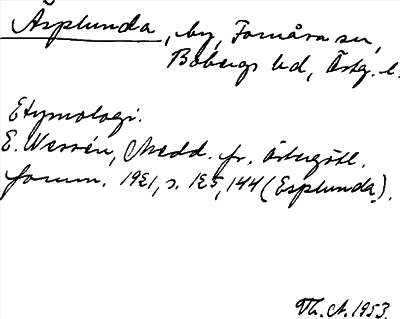 Äsplunda, by, Fornåsa sn,
Bobergs hd, Östg. l.
Etymologi.
E. Wessén, Medd. fr. Östergötl.
fornm. 1921, s. 125, 144 (Esplunda).
Th. A. 1953.